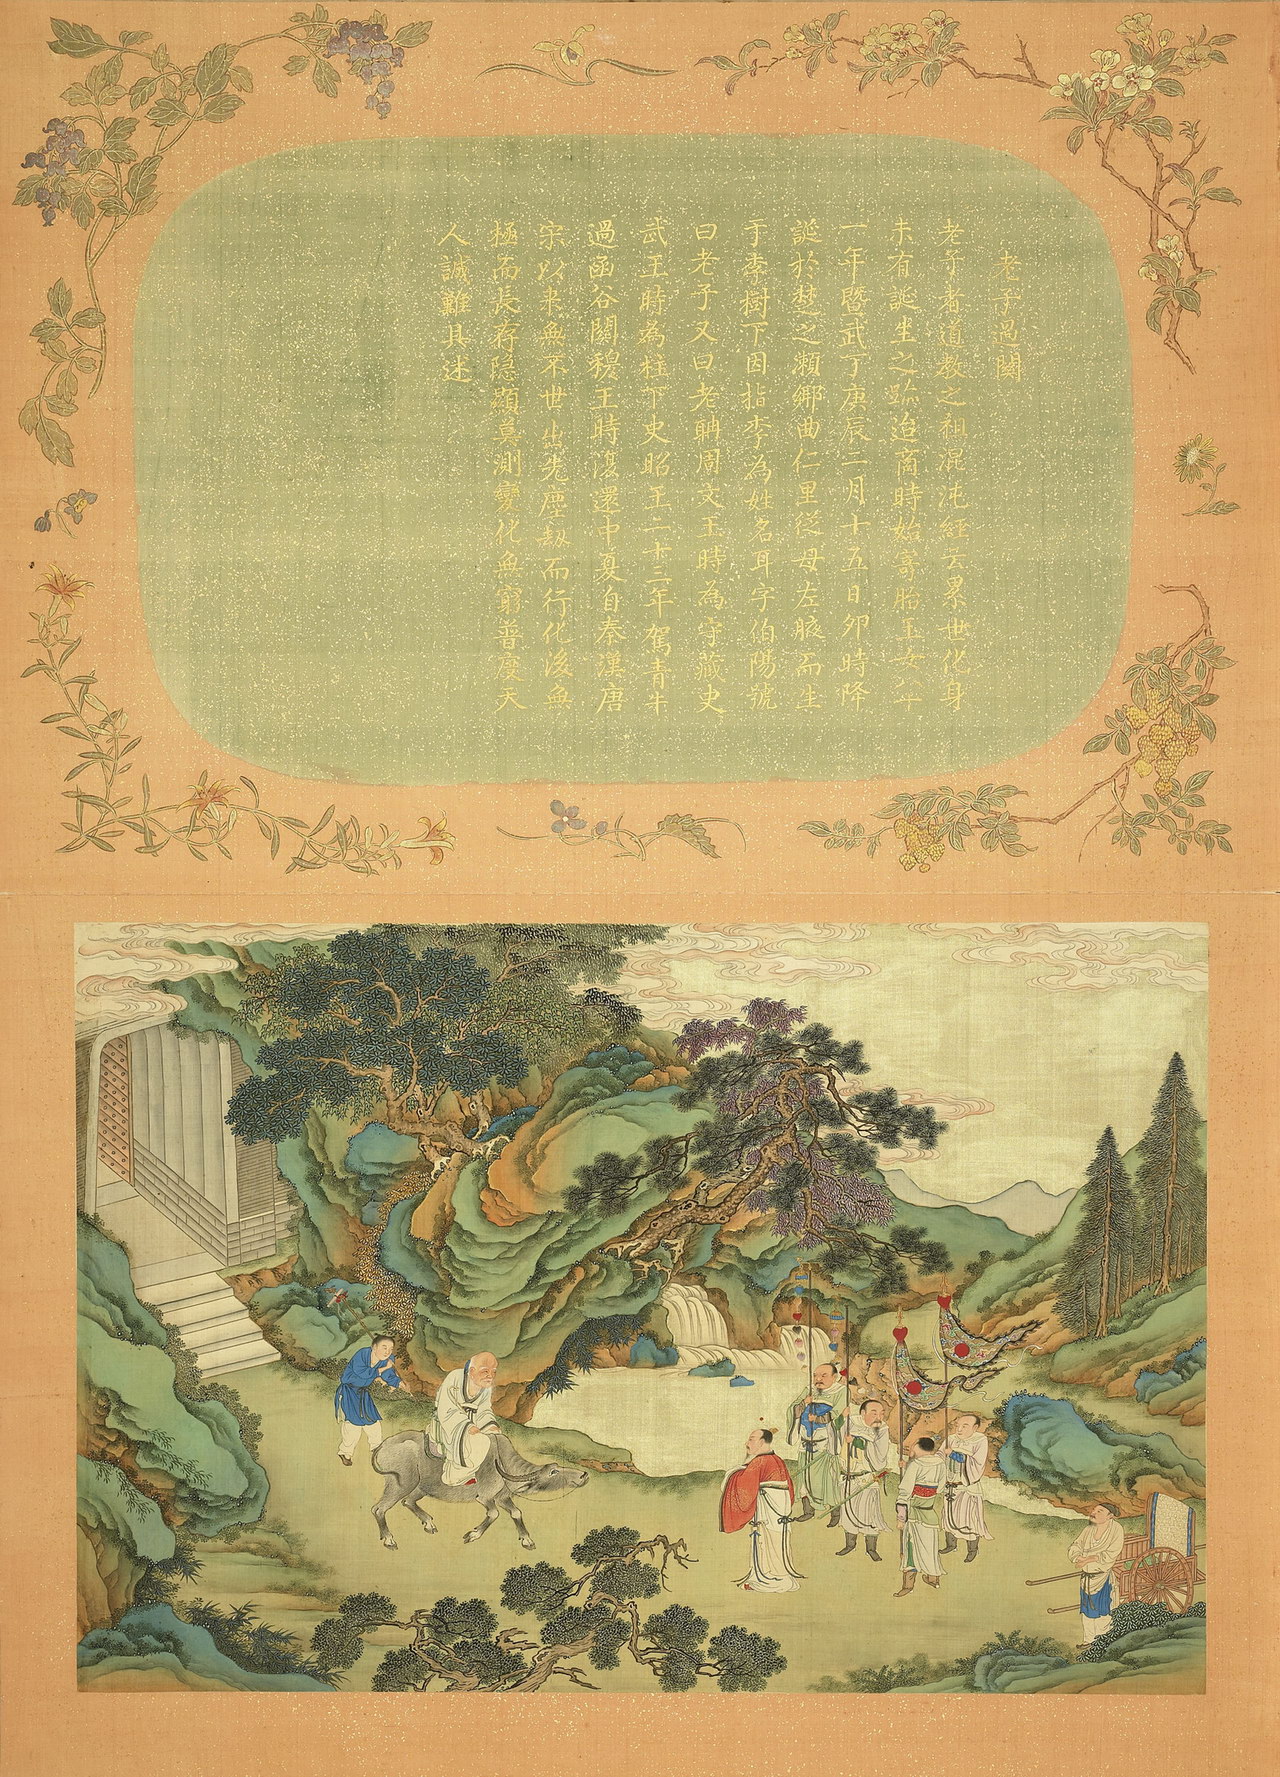 老子過關
老子者道教之祖混沌經云累世化身
未有誕生之跡迨商時始寄胎玉女八十
一年暨武丁庚辰二月十五日卯時降
誕於楚之瀨鄉曲仁里從母左腋而生
于李樹下因指李為姓名耳字伯陽號
曰老子又曰老聃周文王時為守藏史
武王時為柱下史昭王二十三年駕青牛
過函谷關穆王時復還中夏自秦漢唐
宗以來無不世出先塵劫而行化後無
極而長存隱顯莫測變化無窮普度天
人誠難具述